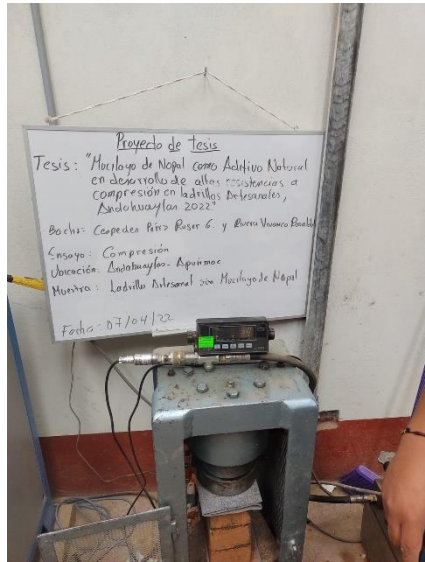 Proyecto de tesis
Tesis: "Mucilago de Nopal como Aditivo Natural
en desarrollo de altas resistencias a
compresión en ladrillos Artesanales,
Andahuaylas 2022"
Bachs: Cespedes Pérez Ruser G. y Rivera Vivanco
Ensayo: Compresión
Ubicación: Andahuaylas - Apurimac
Muestra: Ladrillo Artesanal sin Mucilago de Nopal
Fecha: 07/04/22